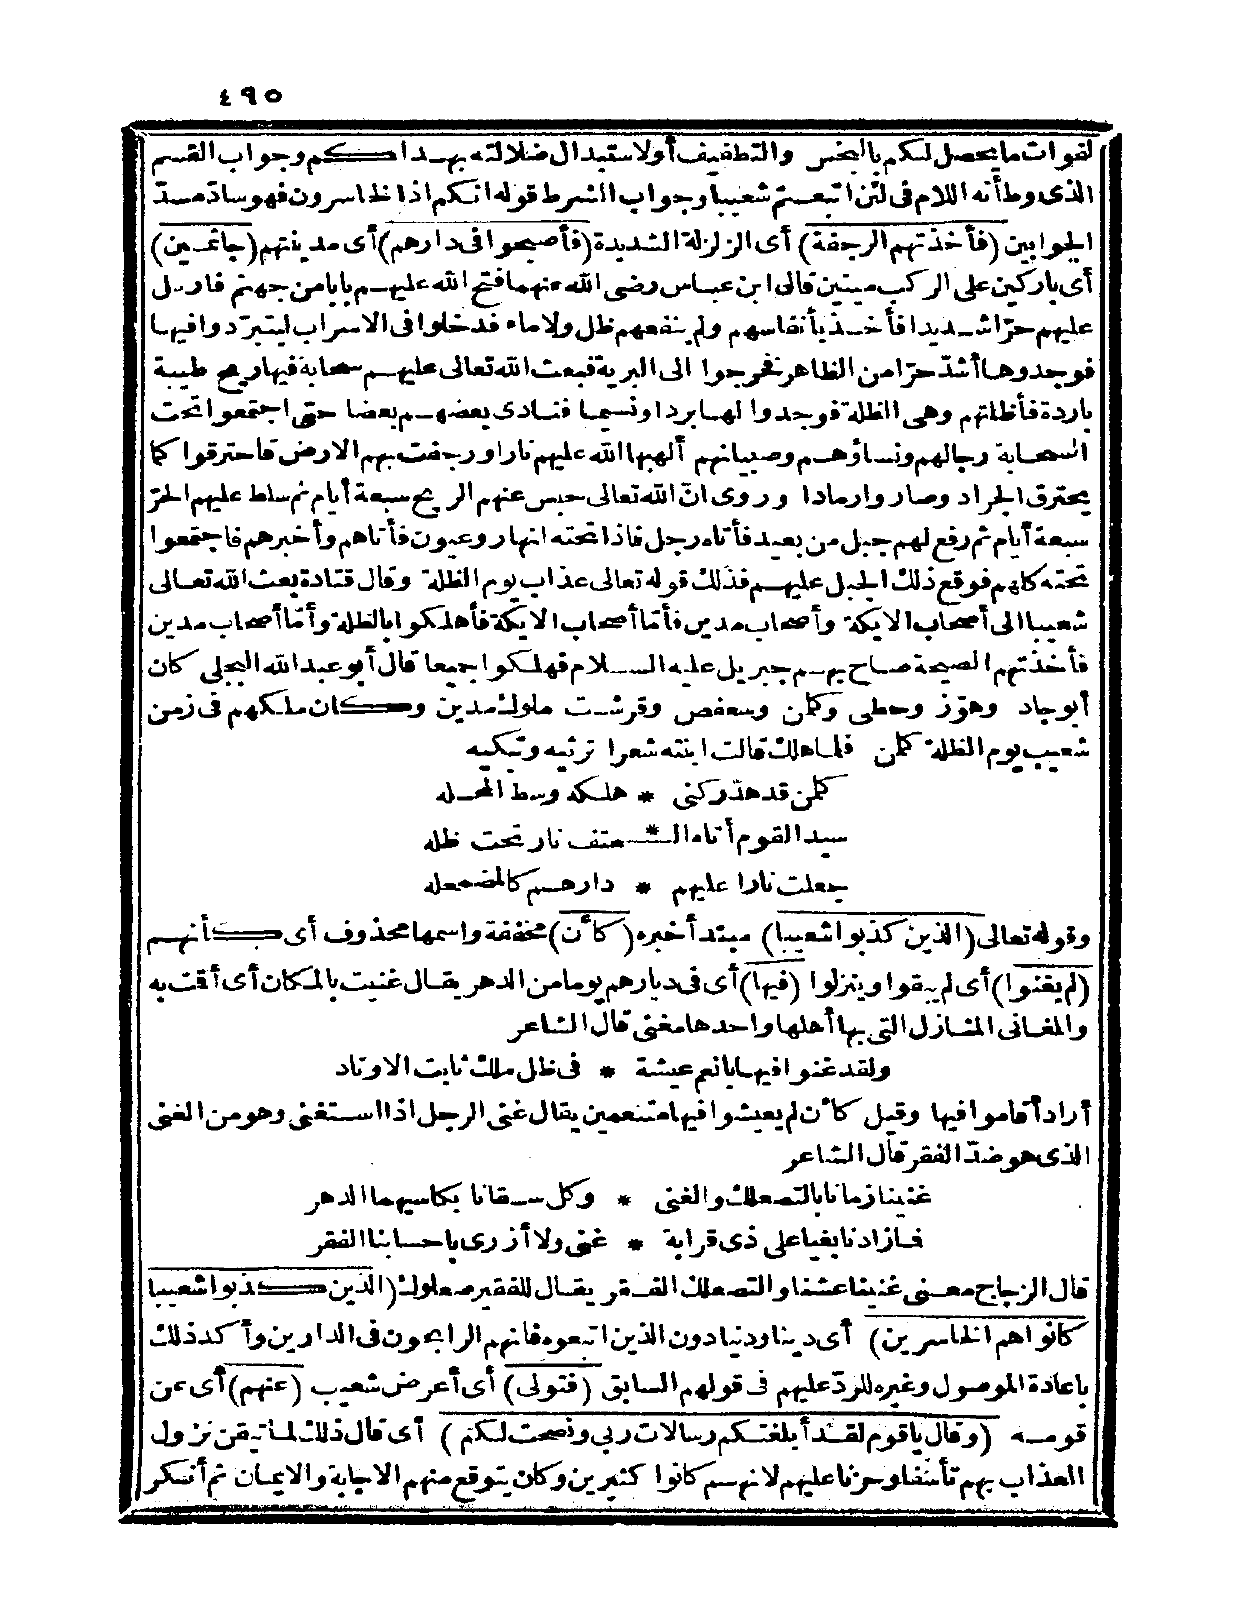 ٤٩٥
لفوات ما يحصل لكم بالبخس والتطفيف أولاستبدال ضلالته بهداكم وجواب القسم
الذى وطأته اللام فى لئن اتبعتم شعيبا وجواب الشرط قوله انكم اذا لخاسرون فهو سادّ مسدّ
الجوابين (فأخذتهم الرجفة) أى الزلزلة الشديدة (فأصبحوا فى دارهم) أى مدينتهم (جاثمين)
أى باركين على الركب ميتين قال ابن عباس رضى الله عنهما فتح الله عليهم بابا من جهنم فارسل
عليهم حرّا شديدا فأخذ بأنفاسهم ولم ينفعهم ظل ولا ماء فدخلوا فى الاسراب ليتبرّدوا فيها
فوجدوها أشدّ حرّا من الظاهر فخرجوا الى البرية فبعث الله تعالى عليهم سحابة فيها ريح طيبة
باردة فأظلتهم وهى الظلة فوجدوا لها بردا ونسيما فنادى بعضهم بعضا حتى اجتمعوا تحت
السحابة رجالهم ونساؤهم وصبيانهم ألهبها الله عليهم نارا ورجفت بهم الارض فاحترقوا كما
يحترق الجراد وصاروا رمادا وروى انّ الله تعالى حبس عنهم الريح سبعة أيام ثم سلط عليهم الحرّ
سبعة أيام ثم رفع لهم جبل من بعيد فأتاه رجل فاذا تحته انهار وعيون فأتاهم وأخبرهم فاجتمعوا
تحته كلهم فوقع ذلك الجبل عليهم فذلك قوله تعالى عذاب يوم الظلة وقال قتادة بعث الله تعالى
شعيبا الى أصحاب الايكة وأصحاب مدين فأمّا أصحاب الايكة فأهلكوا بالظلة وأمّا أصحاب مدين
فأخذتهم الصيحة صاح بهم جبريل عليه السلام فهلكوا جميعا قال أبو عبد الله البجلى كان
أبوجاد وهوّز وحطى وكلمن وسعفص وقرشت ملوك مدين وكان ملكهم فى زمن
شعيب يوم الظلة كلمن فلما هلك قالت ابنته شعرا ترثيه وتبكيه
كلمن قد هدّ ركنى * هلكه وسط المحله
سيد القوم أتاه الـ*ـحتف نار تحت ظله
جعلت نارا عليهم * دارهم كالمضمحله
وقوله تعالى (الذين كذبوا شعيبا) مبتدأ خبره (كأن) مخففة واسمها محذوف أى كأنهم
(لم يغنوا) أى لم يبقوا وينزلوا (فيها) أى فى ديارهم يوما من الدهر يقال غنيت بالمكان أى أقت به
والمغانى المنازل التى بها أهلها واحدها مغنى قال الشاعر
ولقد غنوا فيها بانعم عيشة * فى ظل ملك ثابت الاوتاد
أراد أقاموا فيها وقيل كأن لم يعيشوا فيها متنعمين يقال غنى الرجل اذا استغنى وهو من الغنى
الذى هو ضدّ الفقر قال الشاعر
غنينا زمانا بالتصعلك والغنى * وكل سقانا بكاسيهما الدهر
فما زادنا بغيا على ذى قرابة * غنى ولا أزرى باحسابنا الفقر
قال الزجاج معنى غنينا عشنا والتصعلك الفقر يقال للفقير صعلوك (الذين كذبوا شعيبا
كانوا هم الخاسرين) أى دينا ودنيا دون الذين اتبعوه فانهم الرابحون فى الدارين وأكد ذلك
باعادة الموصول وغيره للردّ عليهم فى قولهم السابق (فتولى) أى أعرض شعيب (عنهم) أى عن
قومه (وقال ياقوم لقد أبلغتكم رسالات ربى ونصحت لكم) أى قال ذلك لما تيقن نزول
العذاب بهم تأسفا وحزنا عليهم لانهم كانوا كثيرين وكان يتوقع منهم الاجابة والايمان ثم أنكر